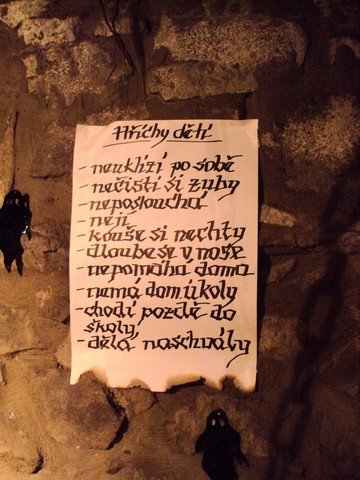 Hříchy dětí
- neuklízí po sobě
- nečistí si zuby
- neposlouchá
- nejí
- kouše si nechty
- dloube se v nose
- nepomáhá doma
- nemá dom.úkoly
- chodí pozdě do
školy
- dělá naschvály